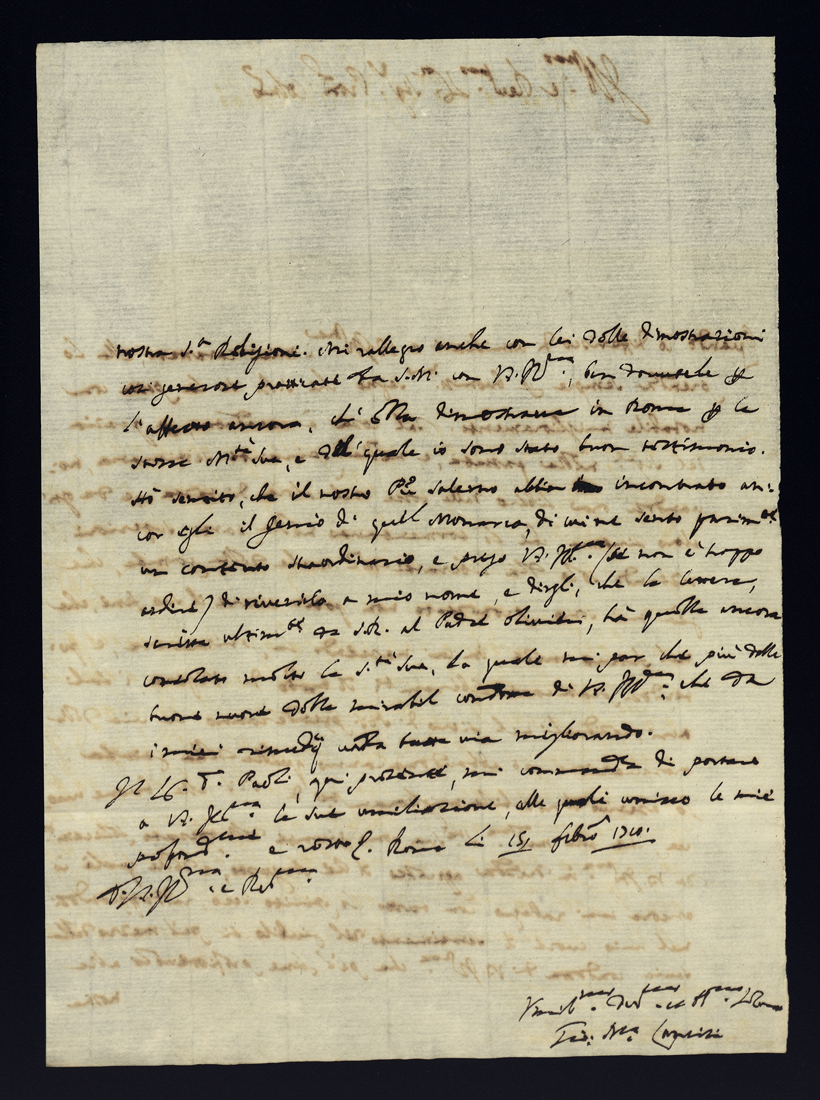 nostra S.ta Religione. Mi rallegro anche con lei delle dimostrazioni
così generose praticate da S. M. con V. Ill.ma, ben dovutele p
l'affetto ancora, ch'Ella dimostrava in Roma p la
stessa M.tà Sua, e del quale io sono stato buon testimonio.
Hò sentito, che il nostro P.re Salerno abbia incontrato an:
cor egli il genio di quell Monarca, di che ne sento parim.te
un contento straordinario, e prego V. Ill.ma (se non è troppo
ardire) di riverirlo a mio nome, e dirgli, che la lettera,
scritta ultim.te da S.R. al Padre Olivieri, hà quella ancora
consolato molto la S.tà Sua, la quale mi par che più dalle
buone nuove della mirabil condotta di V. Ill.ma che da
i miei rimedij vada tutta via migliorando.
Il Paoli, qui presente, mi commanda di portare
a V. Ill.ma le sue umiliazioni, alle quali unisco le mie
profond.me e resto. Roma li 15 febro 1710.
D. V. Ill.ma e Rev.ma
Umil.mo Dev.mo et Obl.mo
Gio: M.a Lancisi